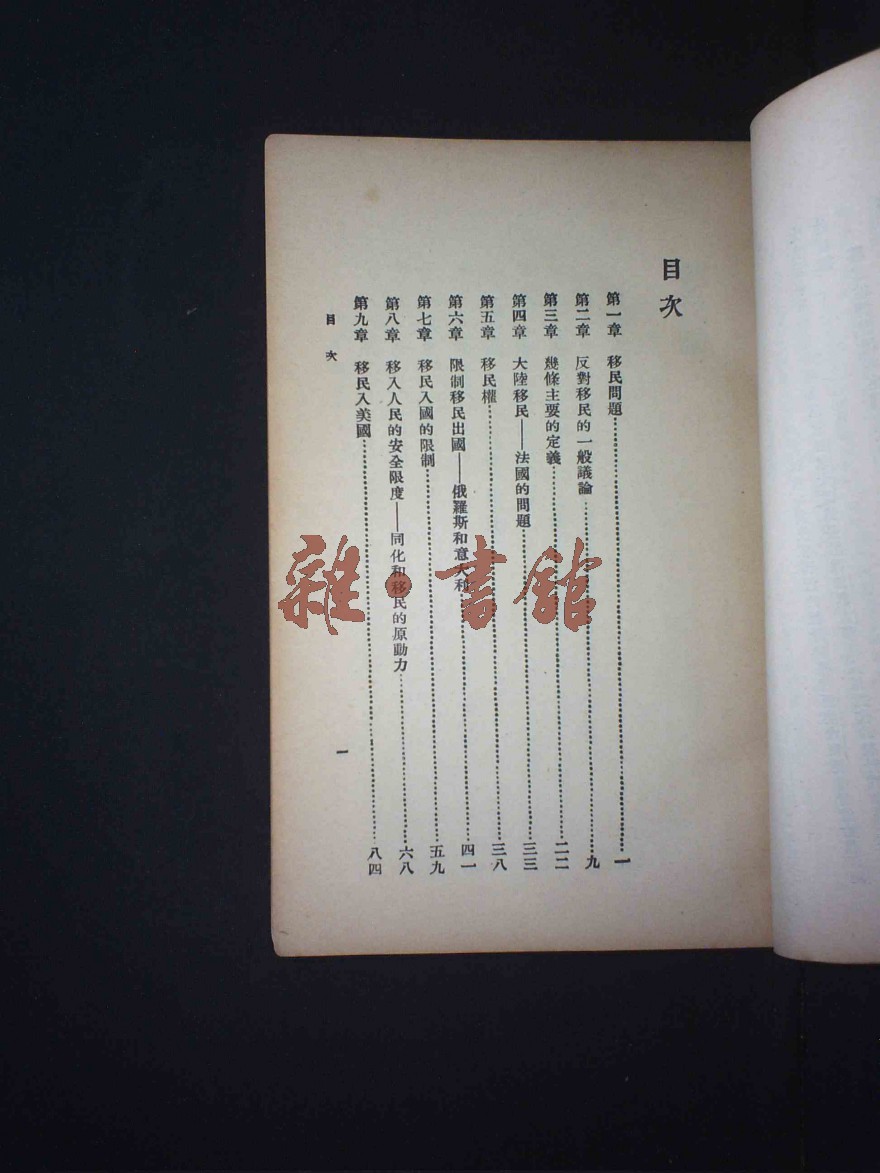 目次
第一章　移民問題……一
第二章　反對移民的一般議論……九
第三章　幾條主要的定義……二二
第四章　大陸移民——法國的問題……三三
第五章　移民權……三八
第六章　限制移民出國——俄羅斯和意大利……四一
第七章　移民入國的限制……五九
第八章　移入人民的安全限度——同化和移民的原動力……六八
第九章　移民入美國……八四
目次
一
雜·書館